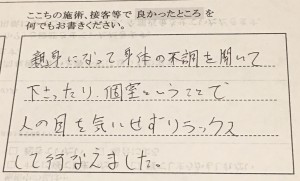 ここちの施術、接客等で良かったところを
何でもお書きください。
親身になって身体の不調を聞いて
下さったり、個室ということで
人の目を気にせずリラックス
して行なえました。